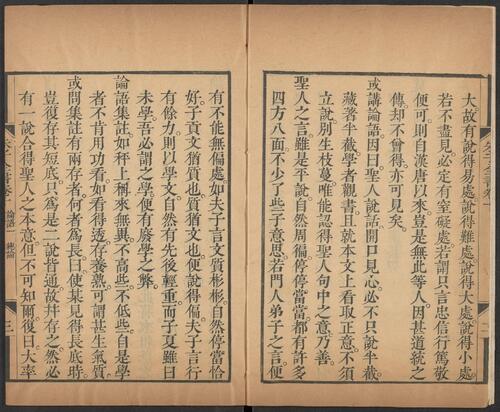 大故有說得易處說得難處說得大處說得小處
若不盡見必定有窒礙處若謂只言忠信行篤敬
便可則自漢唐以來豈是無此等人因甚道統之
傳却不曾得亦可見矣
或講論語因曰聖人說話開口見心必不只說半截
藏著半截學者觀書且就本文上看取正意不須
立說別生枝蔓唯能認得聖人句中之意乃善
聖人之言雖是平說自然周徧停停當當都有許多
四方八面不少了些子意思若門人弟子之言便
有不能無偏處如夫子言文質彬彬自然停當恰
好子貢文猶質也質猶文也便說得偏夫子言行
有餘力則以學文自然有先後輕重而子夏雖曰
未學吾必謂之學便有廢學之弊
論語集註如秤上稱來無異不高些不低些自是學
者不肯用功看如看得透存養熟可謂甚生氣質
或問集註有兩存者何者為長曰使某見得長底時
豈復存其短底只為是二說皆通故幷存之然必
有一說合得聖人之本意但不可知爾復曰大率
論語一 總論
三
二